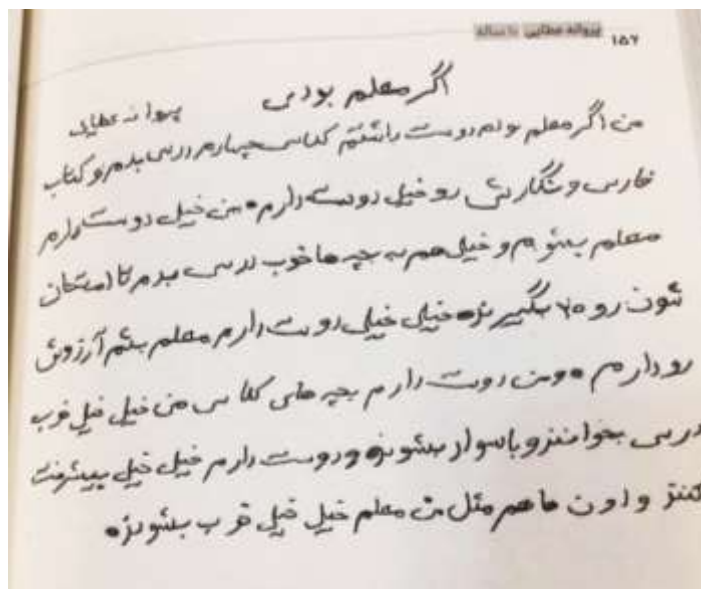 ۱۵۷ پروانه عطایی ۱۰ ساله
اگر معلم بودی
پروانه عطایی
من اگر معلم بودم دوست داشتم کلاس چهارم درس بدم و کتاب
فارسی و نگارش رو خیلی دوست دارم. من خیلی دوست دارم
معلم بشوم و خیلی هم به بچه ها خوب درس بدم تا امتحان
شون رو ۲۰ بگیرند. خیلی خیلی دوست دارم معلم بشم آرزوش
رو دارم. و من دوست دارم بچه های کلاس من خیلی خیلی خوب
درس بخوانند و باسواد بشوند و دوست دارم خیلی خیلی پیشرفت
کنند و اون ها هم مثل من معلم خیلی خیلی خوب بشوند.